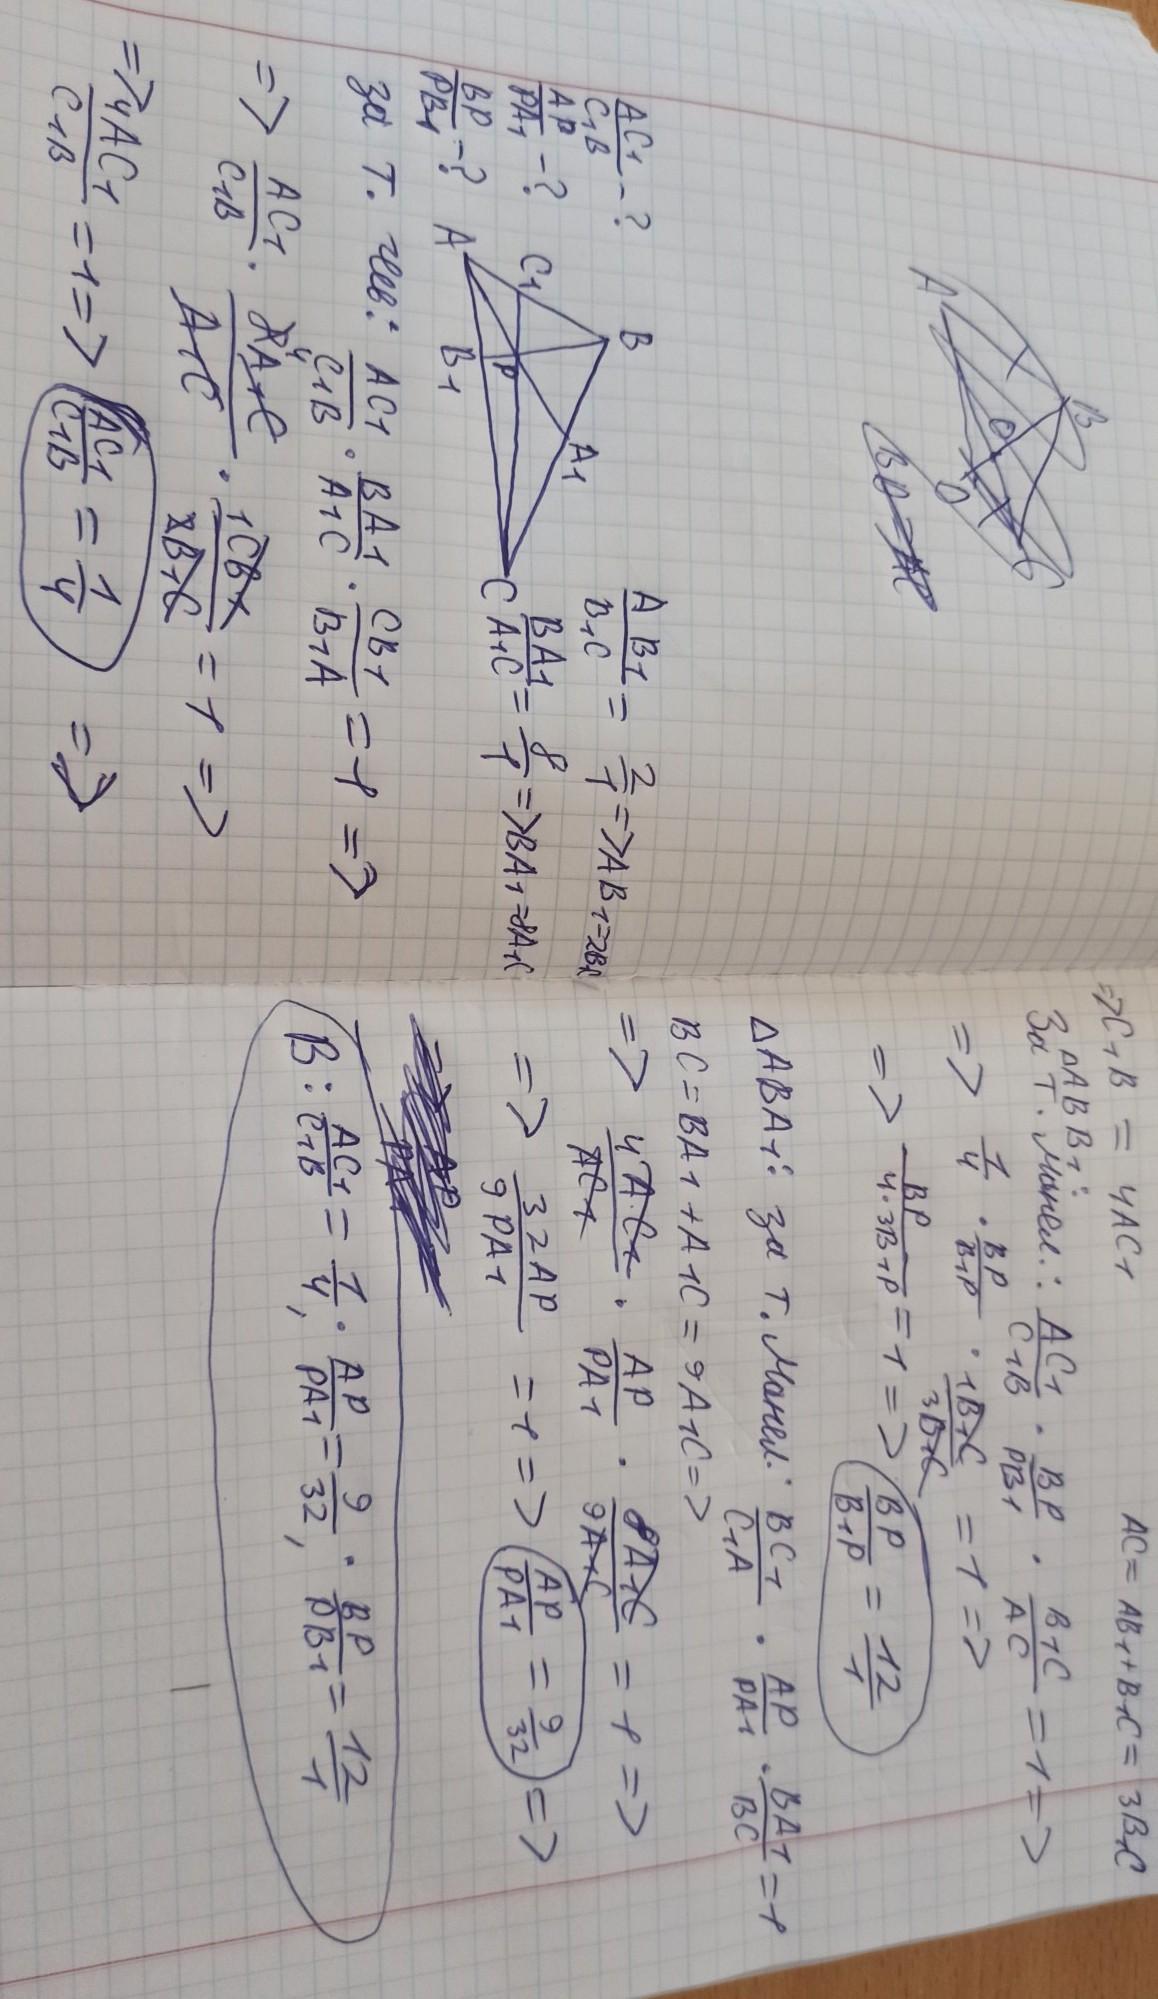 A
B
C
O
D
AC1/C1B - ?
AP/PA1 - ?
BP/PB1 - ?
A
C1
B
A1
C
B1
P
AB1/B1C = 2/1 => AB1=2B1C
BA1/A1C = 8/1 => BA1=8A1C
за т. Чев: AC1/C1B · BA1/A1C · CB1/B1A = 1 =>
=> AC1/C1B · 8A1C/A1C · 1CB1/2B1C = 1 =>
=> 4AC1/C1B = 1 => AC1/C1B = 1/4 =>
=> C1B = 4AC1 AC = AB1+B1C = 3B1C
△ABB1:
За т. Менел.: AC1/C1B · BP/PB1 · B1C/AC = 1 =>
=> 1/4 · BP/B1P · 1B1C/3B1C = 1 =>
=> BP/4·3B1P = 1 => BP/B1P = 12/1
△ABA1: за т. Менел.: BC1/C1A · AP/PA1 · BA1/BC = 1
BC = BA1 + A1C = 9A1C =>
=> 4AC1/AC1 · AP/PA1 · 8A1C/9A1C = 1 =>
=> 32AP/9PA1 = 1 => AP/PA1 = 9/32 =>
В: AC1/C1B = 1/4, · AP/PA1 = 9/32, · BP/PB1 = 12/1